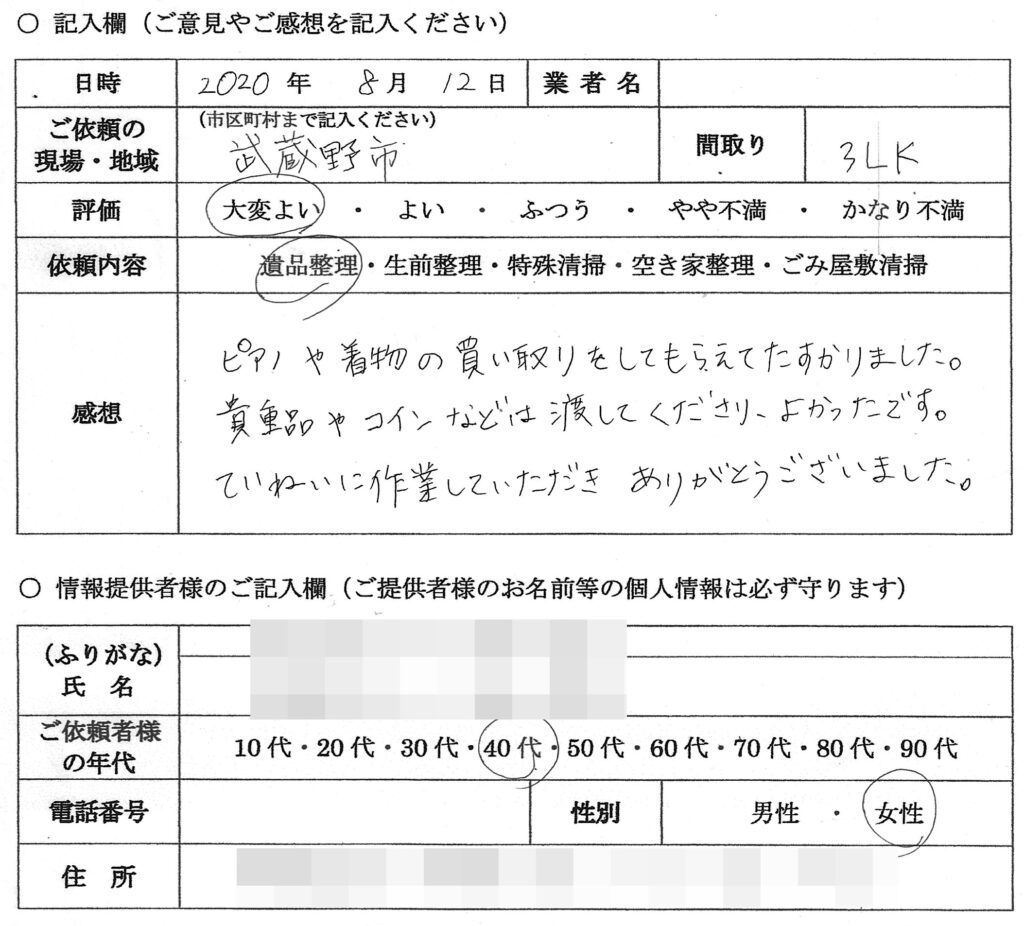 ○ 記入欄（ご意見やご感想を記入ください）
日時 2020 年 8 月 12 日 業者名
ご依頼の現場・地域 （市区町村まで記入ください） 武蔵野市 間取り 3LK
評価 大変よい ・ よい ・ ふつう ・ やや不満 ・ かなり不満
依頼内容 遺品整理・生前整理・特殊清掃・空き家整理・ごみ屋敷清掃
感想
ピアノや着物の買い取りをしてもらえてたすかりました。
貴重品やコインなどは渡してくださり、よかったです。
ていねいに作業していただき ありがとうございました。
○ 情報提供者様のご記入欄（ご提供者様のお名前等の個人情報は必ず守ります）
（ふりがな）
氏 名
ご依頼者様の年代 10代・20代・30代・40代・50代・60代・70代・80代・90代
電話番号 性別 男性 ・ 女性
住 所